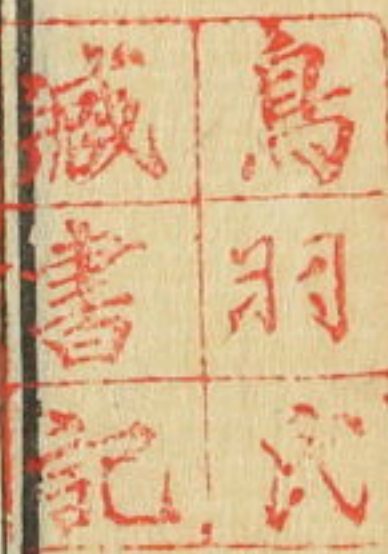 鳥羽氏
藏書記